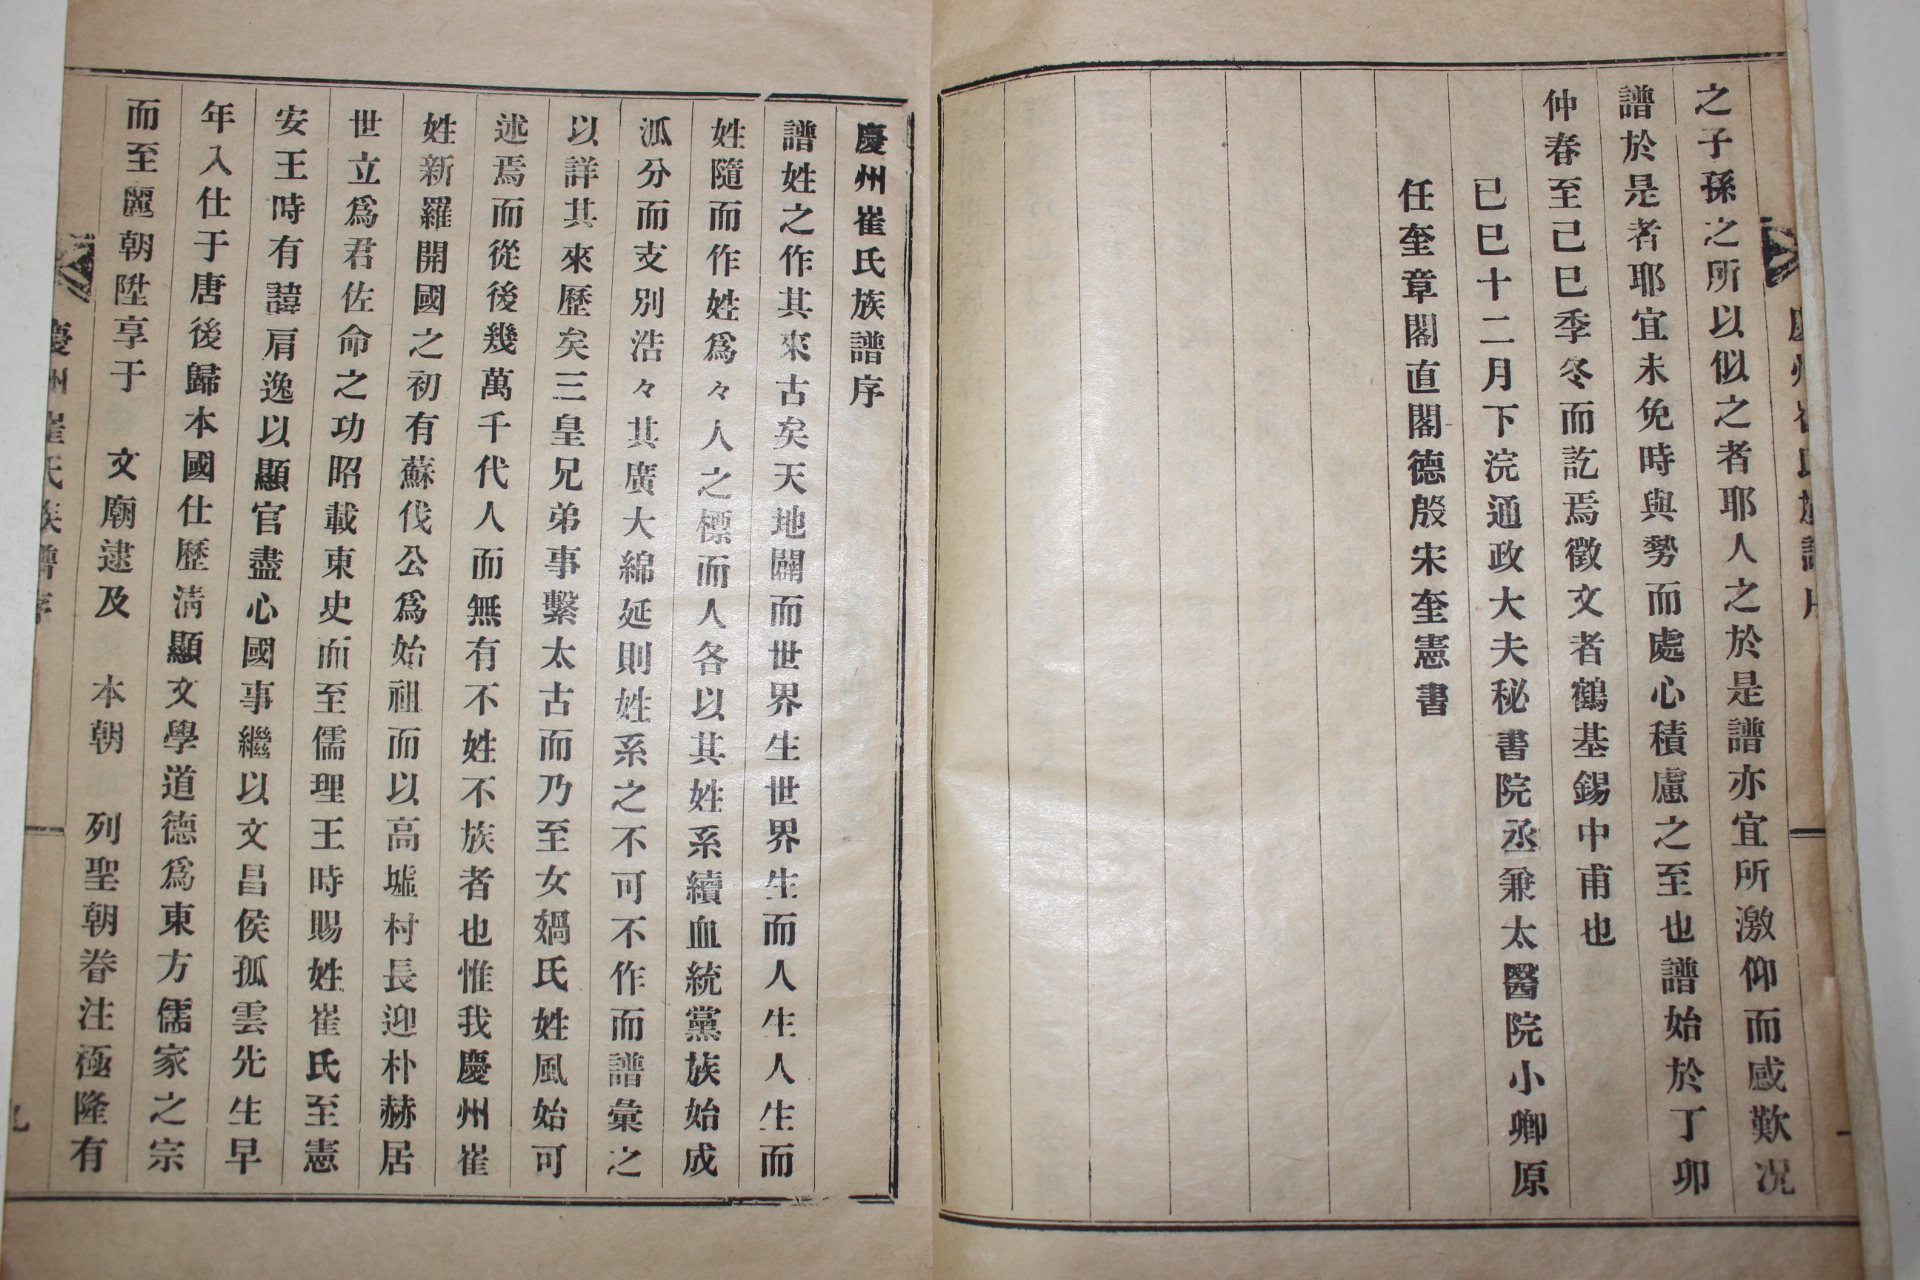 之子孫之所以似之者耶人之於是譜亦宜所激仰而感歎况
譜於是者耶宜未免時與勢而處心積慮之至也譜始於丁卯
仲春至己巳季冬而訖焉徵文者鶴基錫中甫也
已巳十二月下浣通政大夫秘書院丞兼太醫院小卿原
任奎章閣直閣德殷宋奎憲書
慶州崔氏族譜序
譜姓之作其來古矣天地闢而世界生世界生而人生人生而
姓隨而作姓爲々人之標而人各以其姓系續血統黨族始成
泒分而支別浩々其廣大綿延則姓系之不可不作而譜彙之
以詳其來歷矣三皇兄弟事繫太古而乃至女媧氏姓風始可
述焉而從後幾萬千代人而無有不姓不族者也惟我慶州崔
姓新羅開國之初有蘇伐公爲始祖而以高墟村長迎朴赫居
世立爲君佐命之功昭載東史而至儒理王時賜姓崔氏至憲
安王時有諱肩逸以顯官盡心國事繼以文昌侯孤雲先生早
年入仕于唐後歸本國仕歷淸顯文學道德爲東方儒家之宗
而至麗朝陞享于 文廟逮及 本朝 列聖朝眷注極隆有
慶州崔氏族譜序